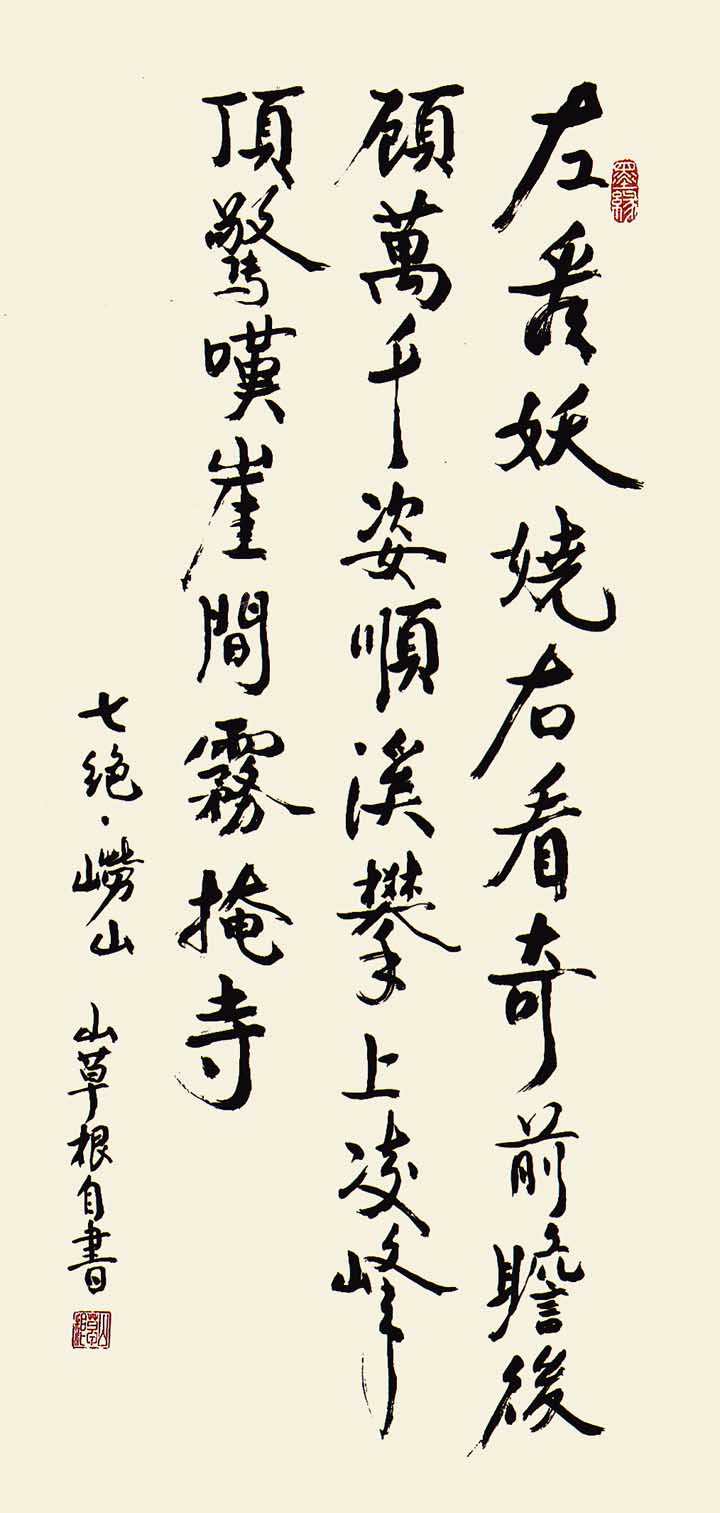 墨緣
左看妖嬈右看奇前瞻後
顧萬千姿順溪攀上凌峰
頂驚嘆崖間霧掩寺
七絕·嶗山 山草根自書